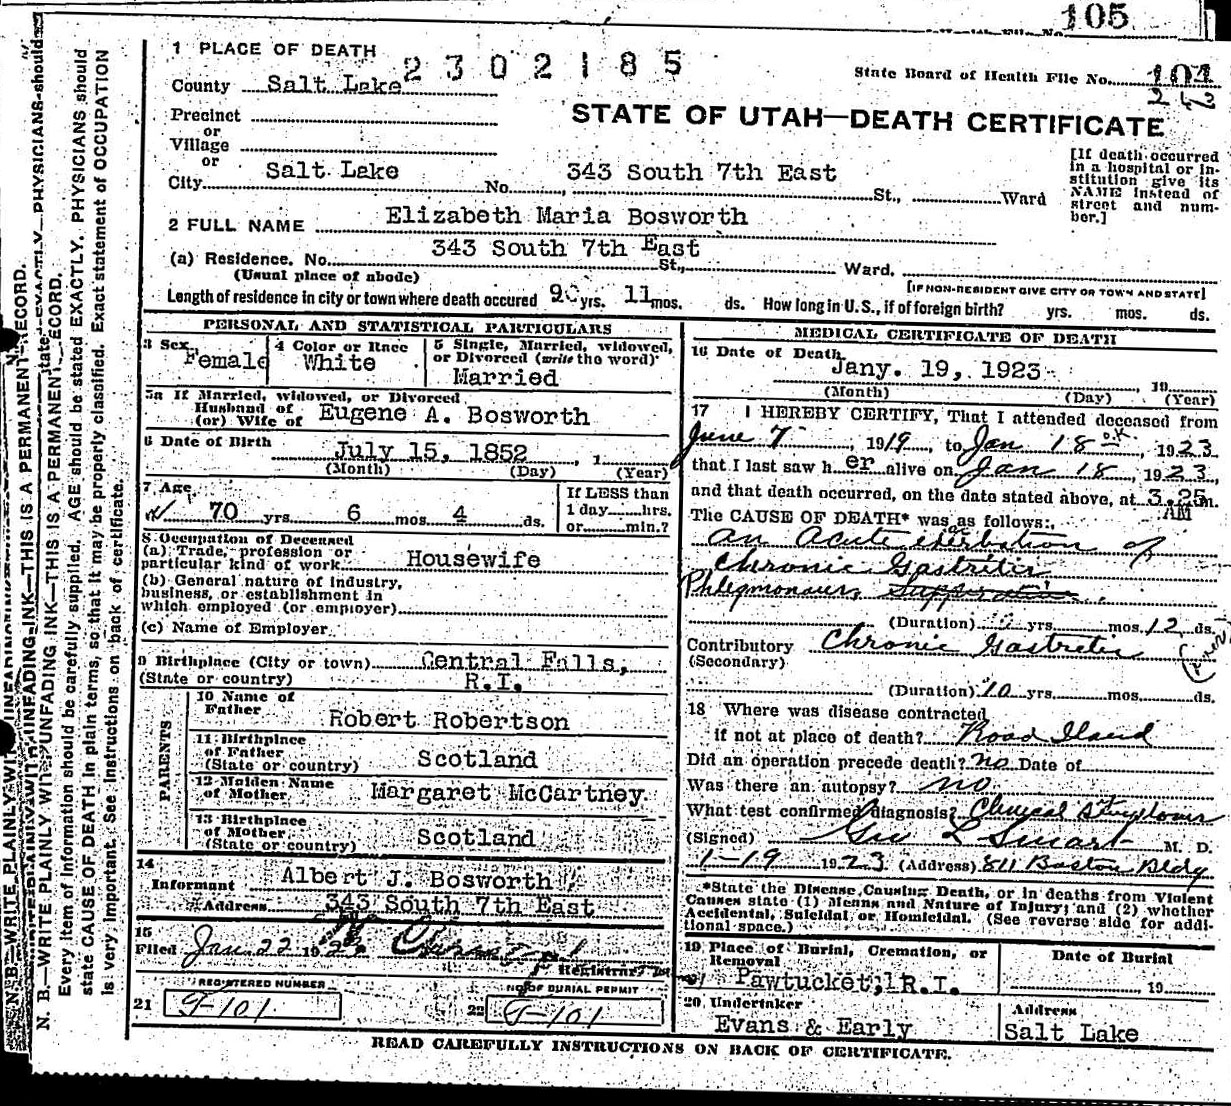 105
1 PLACE OF DEATH
2302185
State Board of Health File No. 101
County Salt Lake
STATE OF UTAH—DEATH CERTIFICATE
Precinct
or
Village
or
City Salt Lake No. 343 South 7th East St., Ward
[If death occurred in a hospital or institution give its NAME instead of street and number.]
2 FULL NAME Elizabeth Maria Bosworth
(a) Residence. No. 343 South 7th East St., Ward.
(Usual place of abode) [IF NON-RESIDENT GIVE CITY OR TOWN AND STATE]
Length of residence in city or town where death occured yrs. 11 mos. ds. How long in U.S., if of foreign birth? yrs. mos. ds.
PERSONAL AND STATISTICAL PARTICULARS
3 Sex Female
4 Color or Race White
5 Single, Married, widowed, or Divorced (write the word) Married
5a If Married, widowed, or Divorced
Husband of
(or) Wife of Eugene A. Bosworth
6 Date of Birth July 15, 1852, 1
(Month) (Day) (Year)
7 Age 70 yrs. 6 mos. 4 ds.
If LESS than
1 day hrs.
or min.?
8 Occupation of Deceased
(a) Trade, profession or
particular kind of work Housewife
(b) General nature of industry,
business, or establishment in
which employed (or employer)
(c) Name of Employer
9 Birthplace (City or town) Central Falls,
(State or country) R.I.
PARENTS
10 Name of
Father Robert Robertson
11 Birthplace
of Father
(State or country) Scotland
12 Maiden Name
of Mother Margaret McCartney
13 Birthplace
of Mother
(State or country) Scotland
14
Informant Albert J. Bosworth
Address 343 South 7th East
15
Filed Jan 22 1923
Registrar
REGISTERED NUMBER
21 G-101
NO OF BURIAL PERMIT
22 G-101
MEDICAL CERTIFICATE OF DEATH
16 Date of Death
Jany. 19, 1923 19
(Month) (Day) (Year)
17 I HEREBY CERTIFY, That I attended deceased from
June 7, 1919, to Jan 18, 1923
that I last saw her alive on Jan 18, 1923,
and that death occurred, on the date stated above, at 3.25 m.
AM
The CAUSE OF DEATH* was as follows:
an Acute of
Chronic Gastritis
(Duration) yrs. mos. 12 ds.
Contributory Chronic Gastritis
(Secondary)
(Duration) 10 yrs. mos. ds.
18 Where was disease contracted
if not at place of death? Road Iland
Did an operation precede death? no Date of
Was there an autopsy? no
What test confirmed diagnosis? Clinical Symptoms
(Signed) Geo L Smart M. D.
1-19 1923 (Address) 811 Boston Bldg
*State the Disease Causing Death, or in deaths from Violent
Causes state (1) Means and Nature of Injury; and (2) whether
Accidental, Suicidal or Homicidal. (See reverse side for additional space.)
19 Place of Burial, Cremation, or
Removal
Pawtucket, R.I.
Date of Burial
19
20 Undertaker
Evans & Early
Address
Salt Lake
READ CAREFULLY INSTRUCTIONS ON BACK OF CERTIFICATE.
N. B.—WRITE PLAINLY WITH UNFADING INK—THIS IS A PERMANENT RECORD.
Every item of information should be carefully supplied. AGE should be stated EXACTLY. PHYSICIANS should
state CAUSE OF DEATH in plain terms, so that it may be properly classified. Exact statement of OCCUPATION
is very important. See instructions on back of certificate.